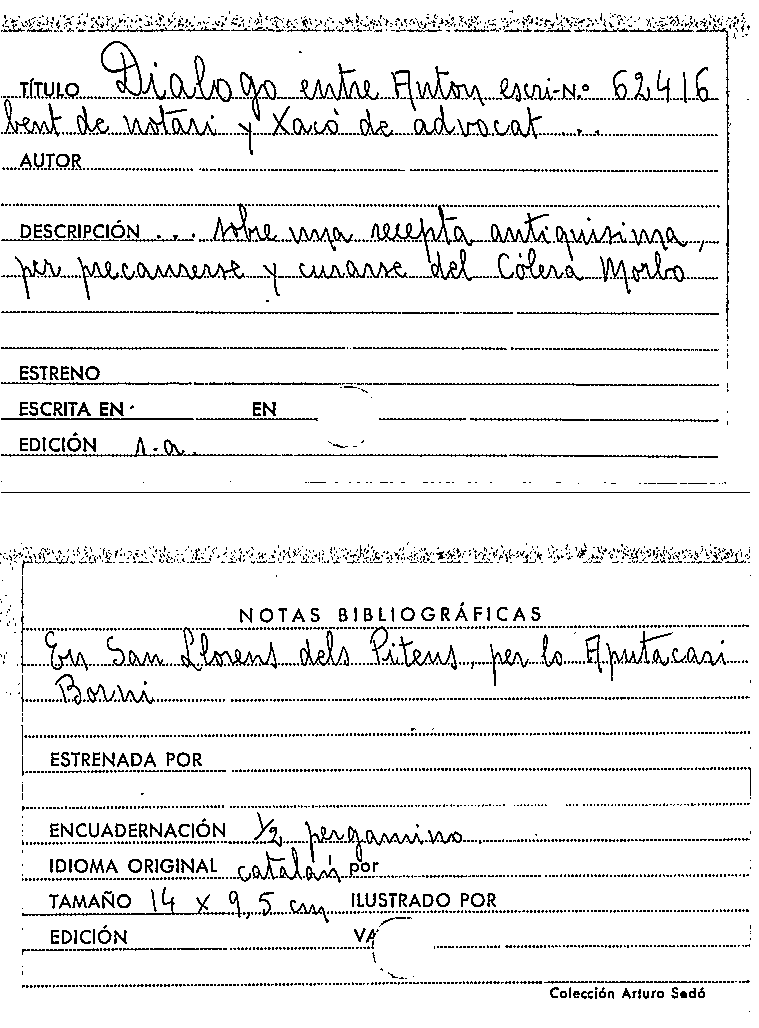 TÍTULO Dialogo entre Anton escri- N.º 62416
bent de notari y Xacó de advocat ...
AUTOR
DESCRIPCIÓN ... sobre una recepta antiquisima,
per precaurerse y curarse del Cólera Morbo
ESTRENO
ESCRITA EN EN
EDICIÓN s.a.
NOTAS BIBLIOGRÁFICAS
En San Llorens dels Piteus, per lo Aputacari
Borni
ESTRENADA POR
ENCUADERNACIÓN 1/2 pergamino
IDIOMA ORIGINAL catalán por
TAMAÑO 14 x 9,5 cm ILUSTRADO POR
EDICIÓN VA
Colección Arturo Sedó